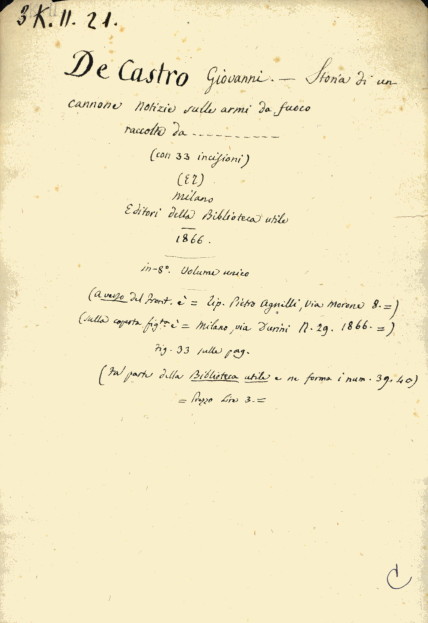 3 K. II. 21.
De Castro Giovanni. — Storia di un
cannone Notizie sulle armi da fuoco
raccolte da ----------
(con 33 incisioni)
Milano
Editori della Biblioteca utile
1866.
in-8°. Volume unico
(a verso del Front. è = Tip. Pietro Agnelli, Via Morone 8. =)
(sulla coperta fig.ta è = Milano, via Durini N. 29. 1866. =)
Fig. 33 sulle pag.
(Fa parte della Biblioteca utile e ne forma i num. 39. 40)
= Prezzo Lire 3. =